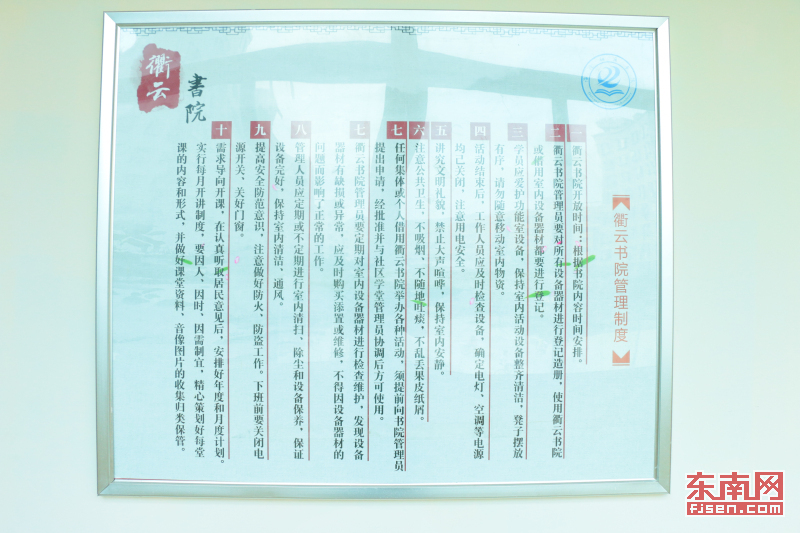 衢云
书院
衢云书院管理制度
一 衢云书院开放时间：根据书院内容时间安排。
二 衢云书院管理员要对所有设备器材进行登记造册，使用衢云书院
或借用室内设备器材都要进行登记。
三 学员应爱护功能室设备，保持室内活动设备整齐清洁，凳子摆放
有序，请勿随意移动室内物资。
四 活动结束后，工作人员应及时检查设备，确定电灯、空调等电源
均已关闭，注意用电安全。
五 讲究文明礼貌，禁止大声喧哗，保持室内安静。
六 注意公共卫生，不吸烟、不随地吐痰，不乱丢果皮纸屑。
七 任何集体或个人借用衢云书院举办各种活动，须提前向书院管理员
提出申请，经批准并与社区学堂管理员协调后方可使用。
七 衢云书院管理员要定期对室内设备器材进行检查维护，发现设备
器材有缺损或异常，应及时购买添置或维修，不得因设备器材的
问题而影响了正常的工作。
八 管理人员应定期或不定期进行室内清扫、除尘和设备保养，保证
设备完好，保持室内清洁、通风。
九 提高安全防范意识，注意做好防火、防盗工作。下班前要关闭电
源开关、关好门窗。
十 需求导向开课，在认真听取居民意见后，安排好年度和月度计划。
实行每月开讲制度，要因人、因时、因需制宜，精心策划好每堂
课的内容和形式，并做好课堂资料、音像图片的收集归类保管。
东南网
FJSEN.COM